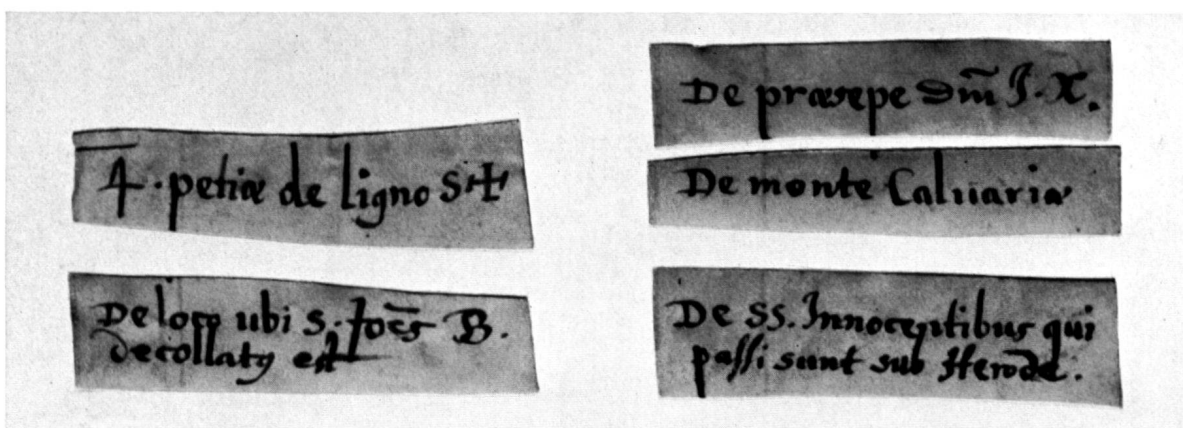 4. petiæ de ligno S ✝
De loco ubi s. Joēs B.
decollatꝰ est
De præsepe Dm̄ J. X.
De monte Caluariæ
De SS. Innocentibus qui
passi sunt sub Herode.